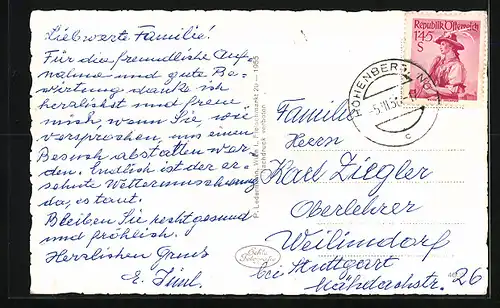 Liebwerte Familie!
Für die freundliche Auf-
nahme und gute Be-
wirtung danke ich
herzlichst und freue
mich, wenn Sie, wie
versprochen, uns einen
Besuch abstatten wer-
den. Endlich ist der er-
sehnte Wetterumschwung
da, es taut.
Bleiben Sie recht gesund
und fröhlich.
Herzlichen Gruß
E.
Republik Österreich
1'45
S
HOHENBERG, NÖ
c
Familie
Herrn
Karl Ziegler
Oberlehrer
Weilimdorf
bei Stuttgart
26